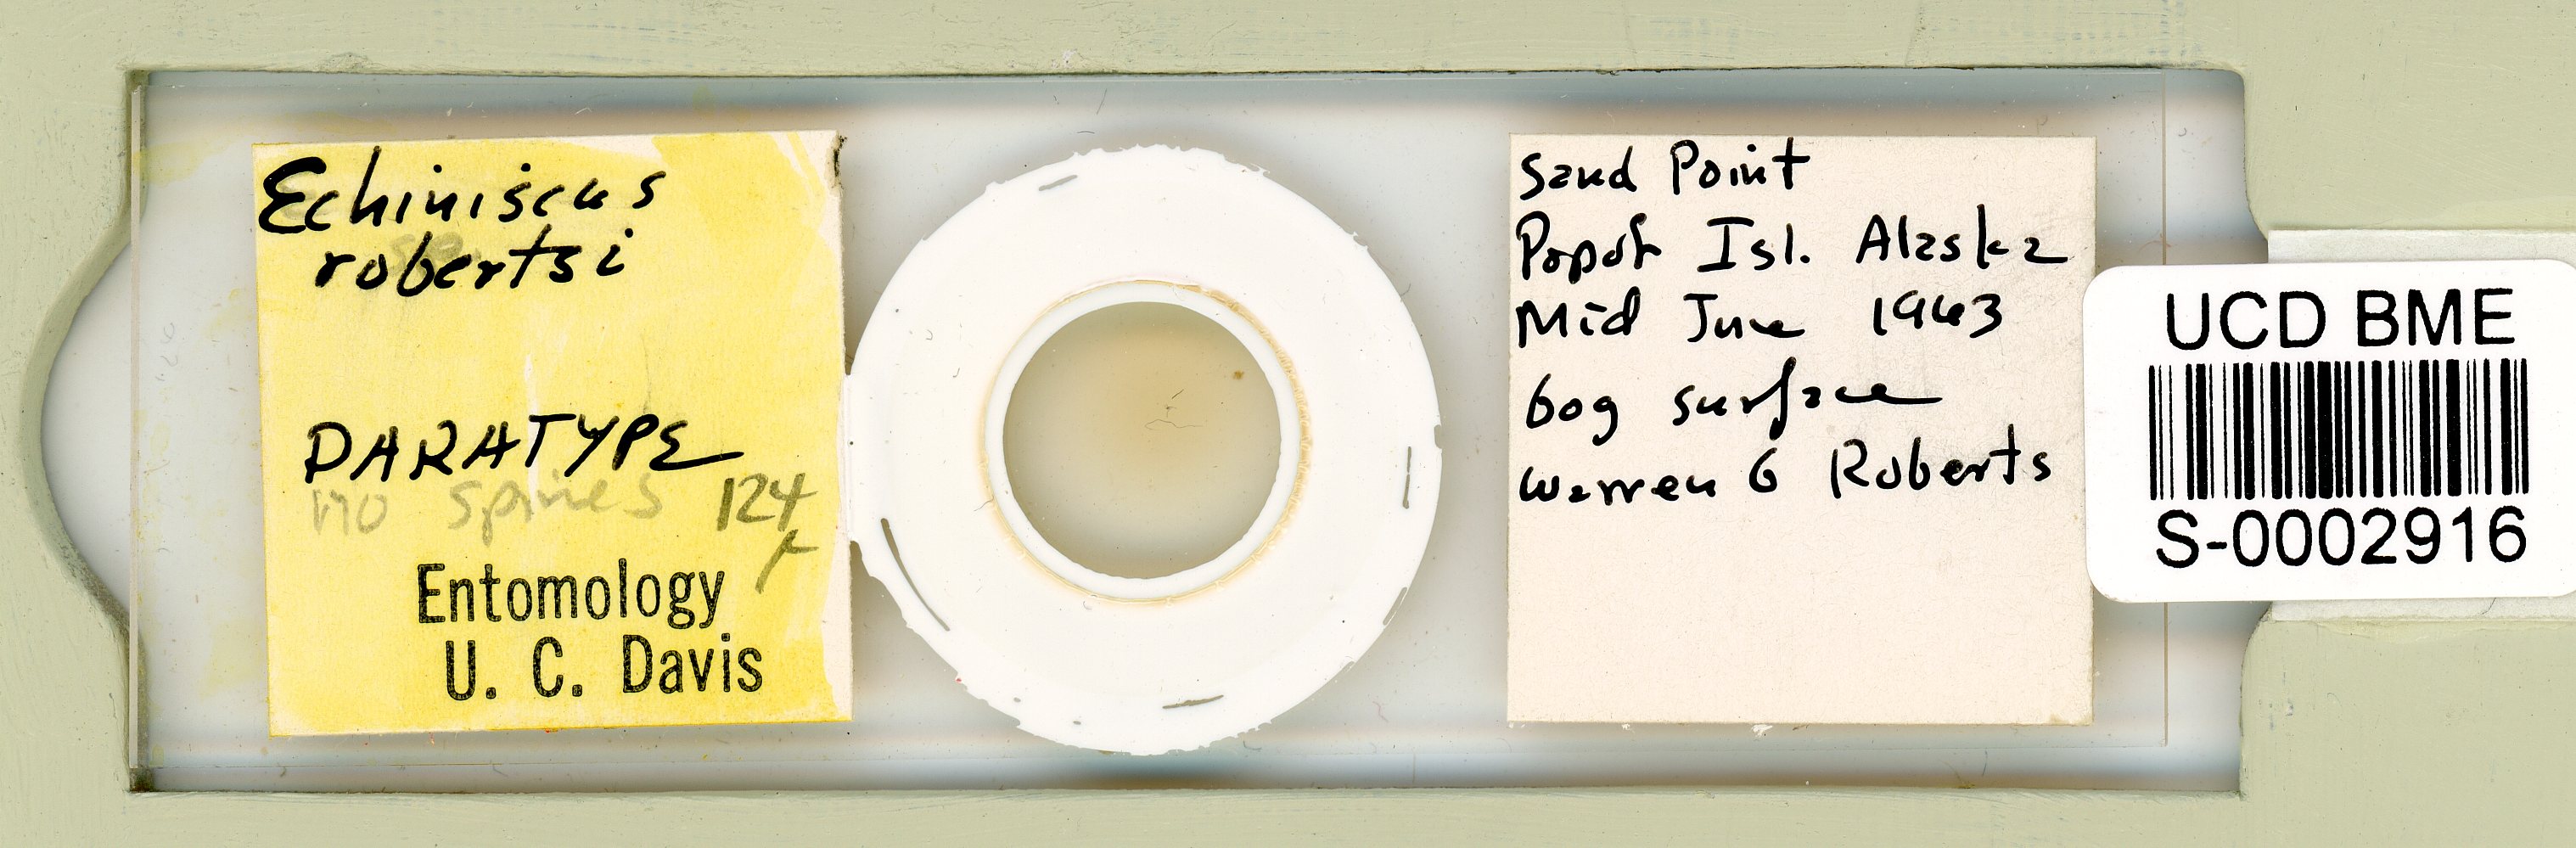 Echiniscus
robertsi
PARATYPE
no spines 124
µ
Entomology
U. C. Davis
Sand Point
Popof Isl. Alaska
Mid June 1963
bog surface
Warren G Roberts
UCD BME
S-0002916